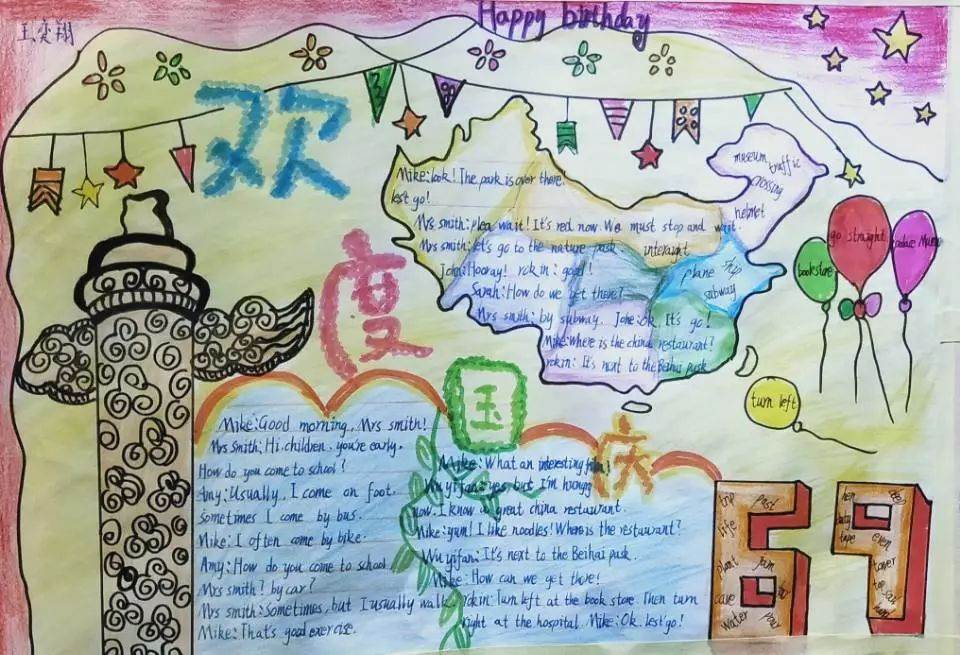 Happy birthday
王奕翔
欢
度
国
庆
Mike: look! The park is over there!
lest go!
Mrs smith: plea wait! It's red now. We must stop and wait.
Mrs smith: let's go to the nature park.
John: Hooray! rokin: good!
Sarah: How do we get there?
Mrs smith: by subway. John: ok. It's go!
Mike: Where is the china restaurant?
rokin: It's next to the Beihai park
museum traffic
crossing
helmet
plane ship
subway
bookstore
go straight
turn left
Mike: Good morning, Mrs smith!
Mrs Smith: Hi, children. you're early.
How do you come to school?
Amy: Usually, I come on foot.
Sometimes I come by bus.
Mike: I often come by bike.
Amy: How do you come to school
Mrs smith? by car?
Mrs smith: Sometimes, but I usually walk.
Mike: That's good exercise.
Mike: What an interesting film!
Wu yifan: yes, but I'm hungry
now. I know a great china restaurant.
Mike: yum! I like noodles! Where is the restaurant?
Wu yifan: It's next to the Beihai park.
Mike: How can we get there!
rokin: Turn left at the book store. Then turn
right at the hospital. Mike: Ok. lest'go!
69
life
cave
Water
you
tape
even